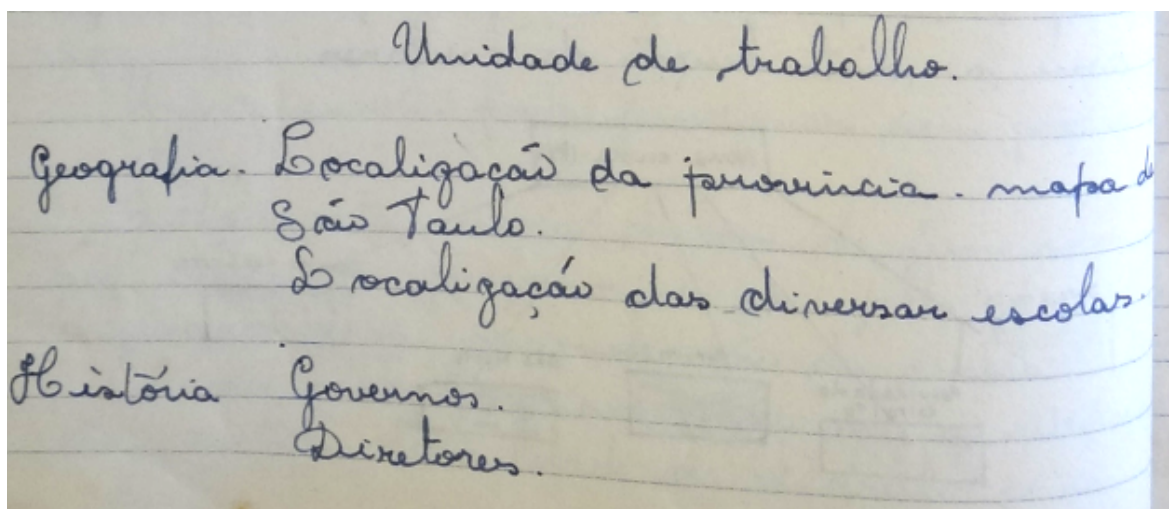 Unidade de trabalho.
Geografia. Localização da província. mapa de
São Paulo.
Localização das diversas escolas.
História Governos.
Diretores.